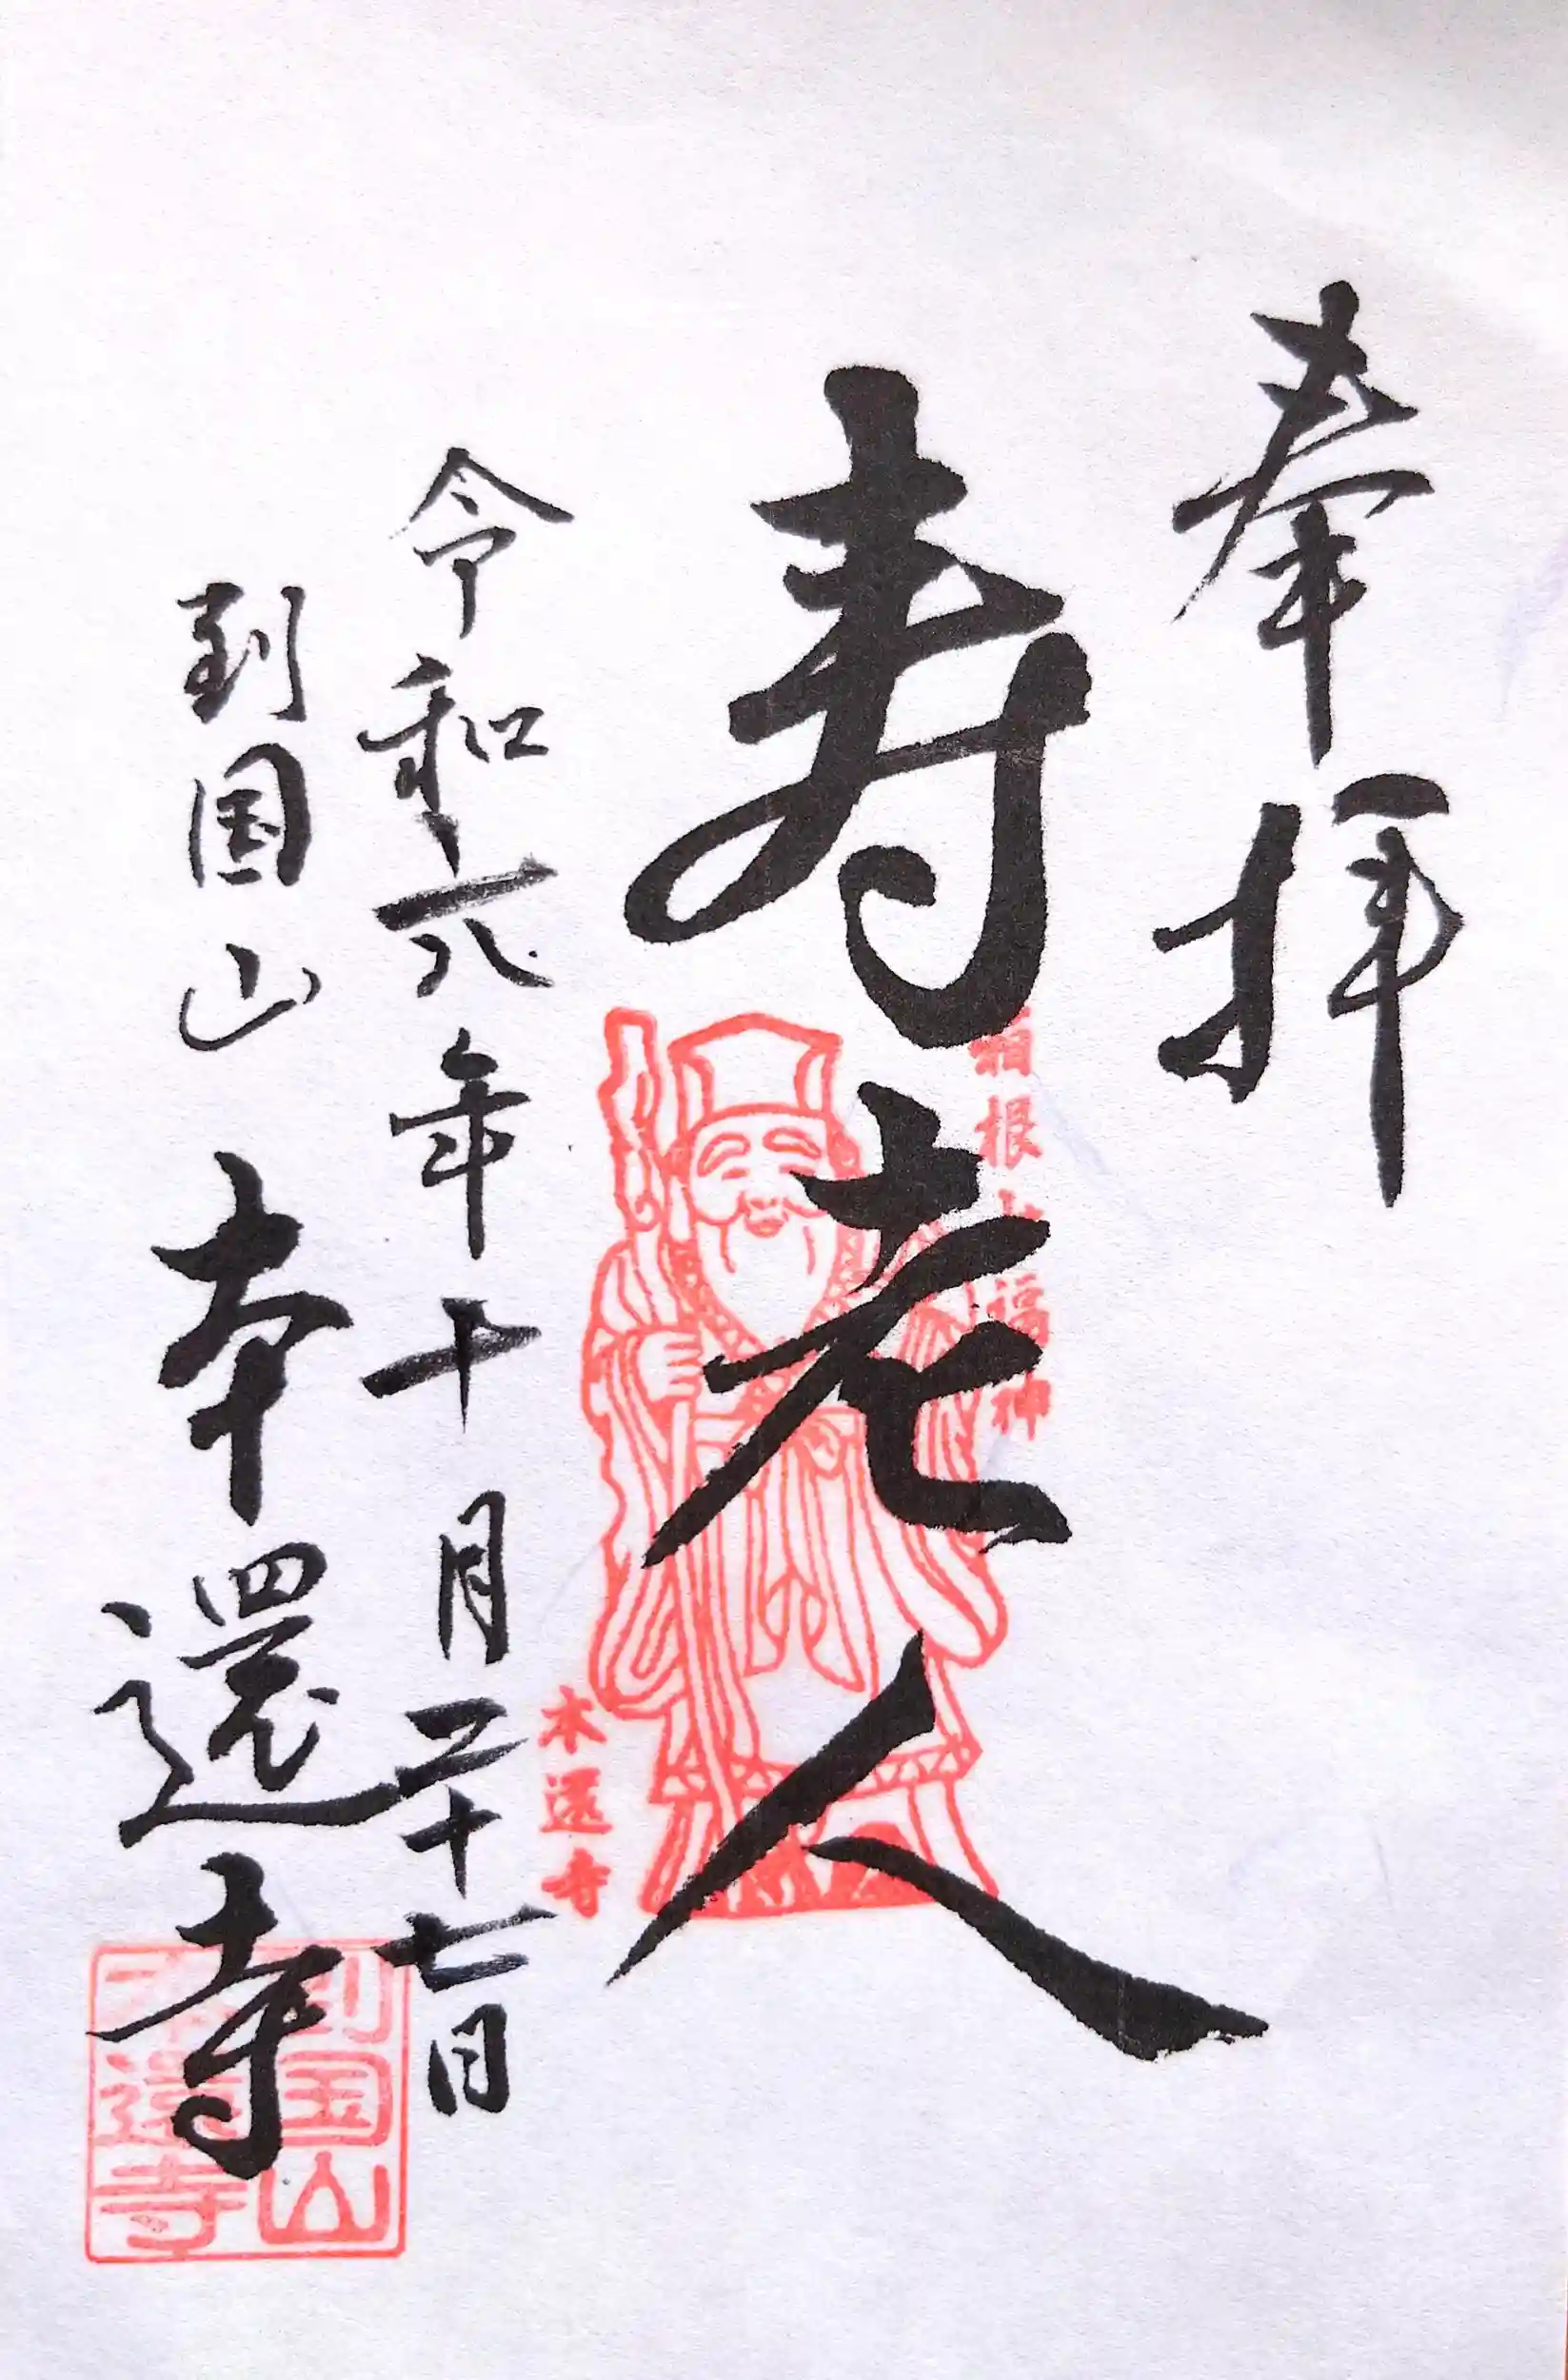 奉拝
寿老人
箱根七福神
令和六年十月二十七日
本還寺
到国山
本還寺
到国山
本還寺